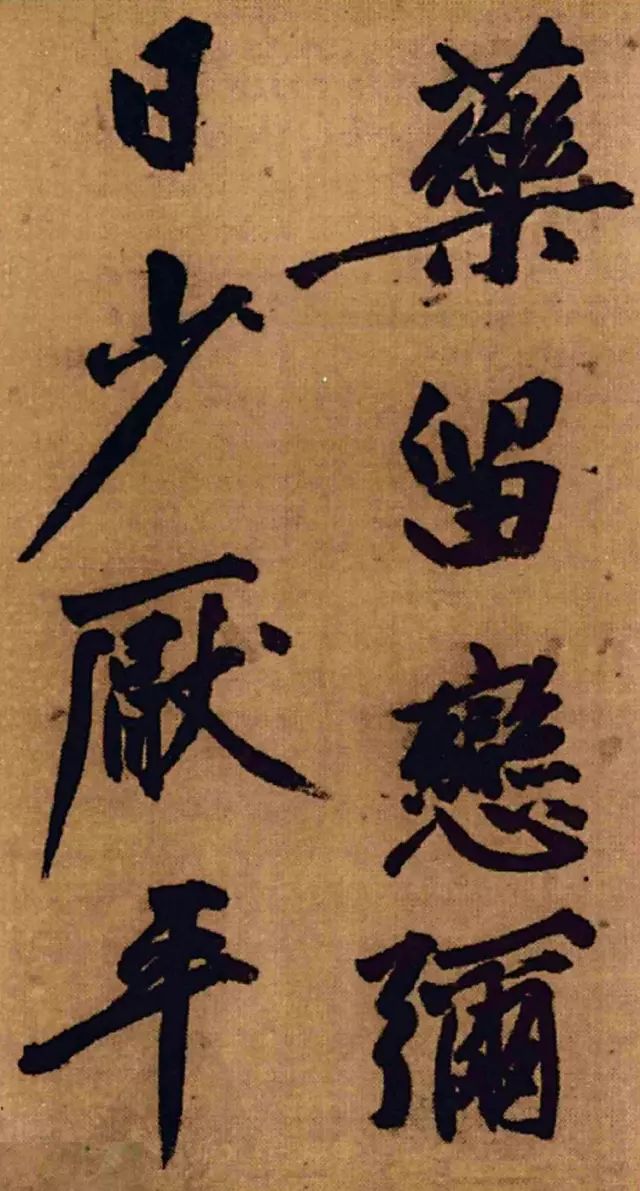 藥留戀彌
日少厭平